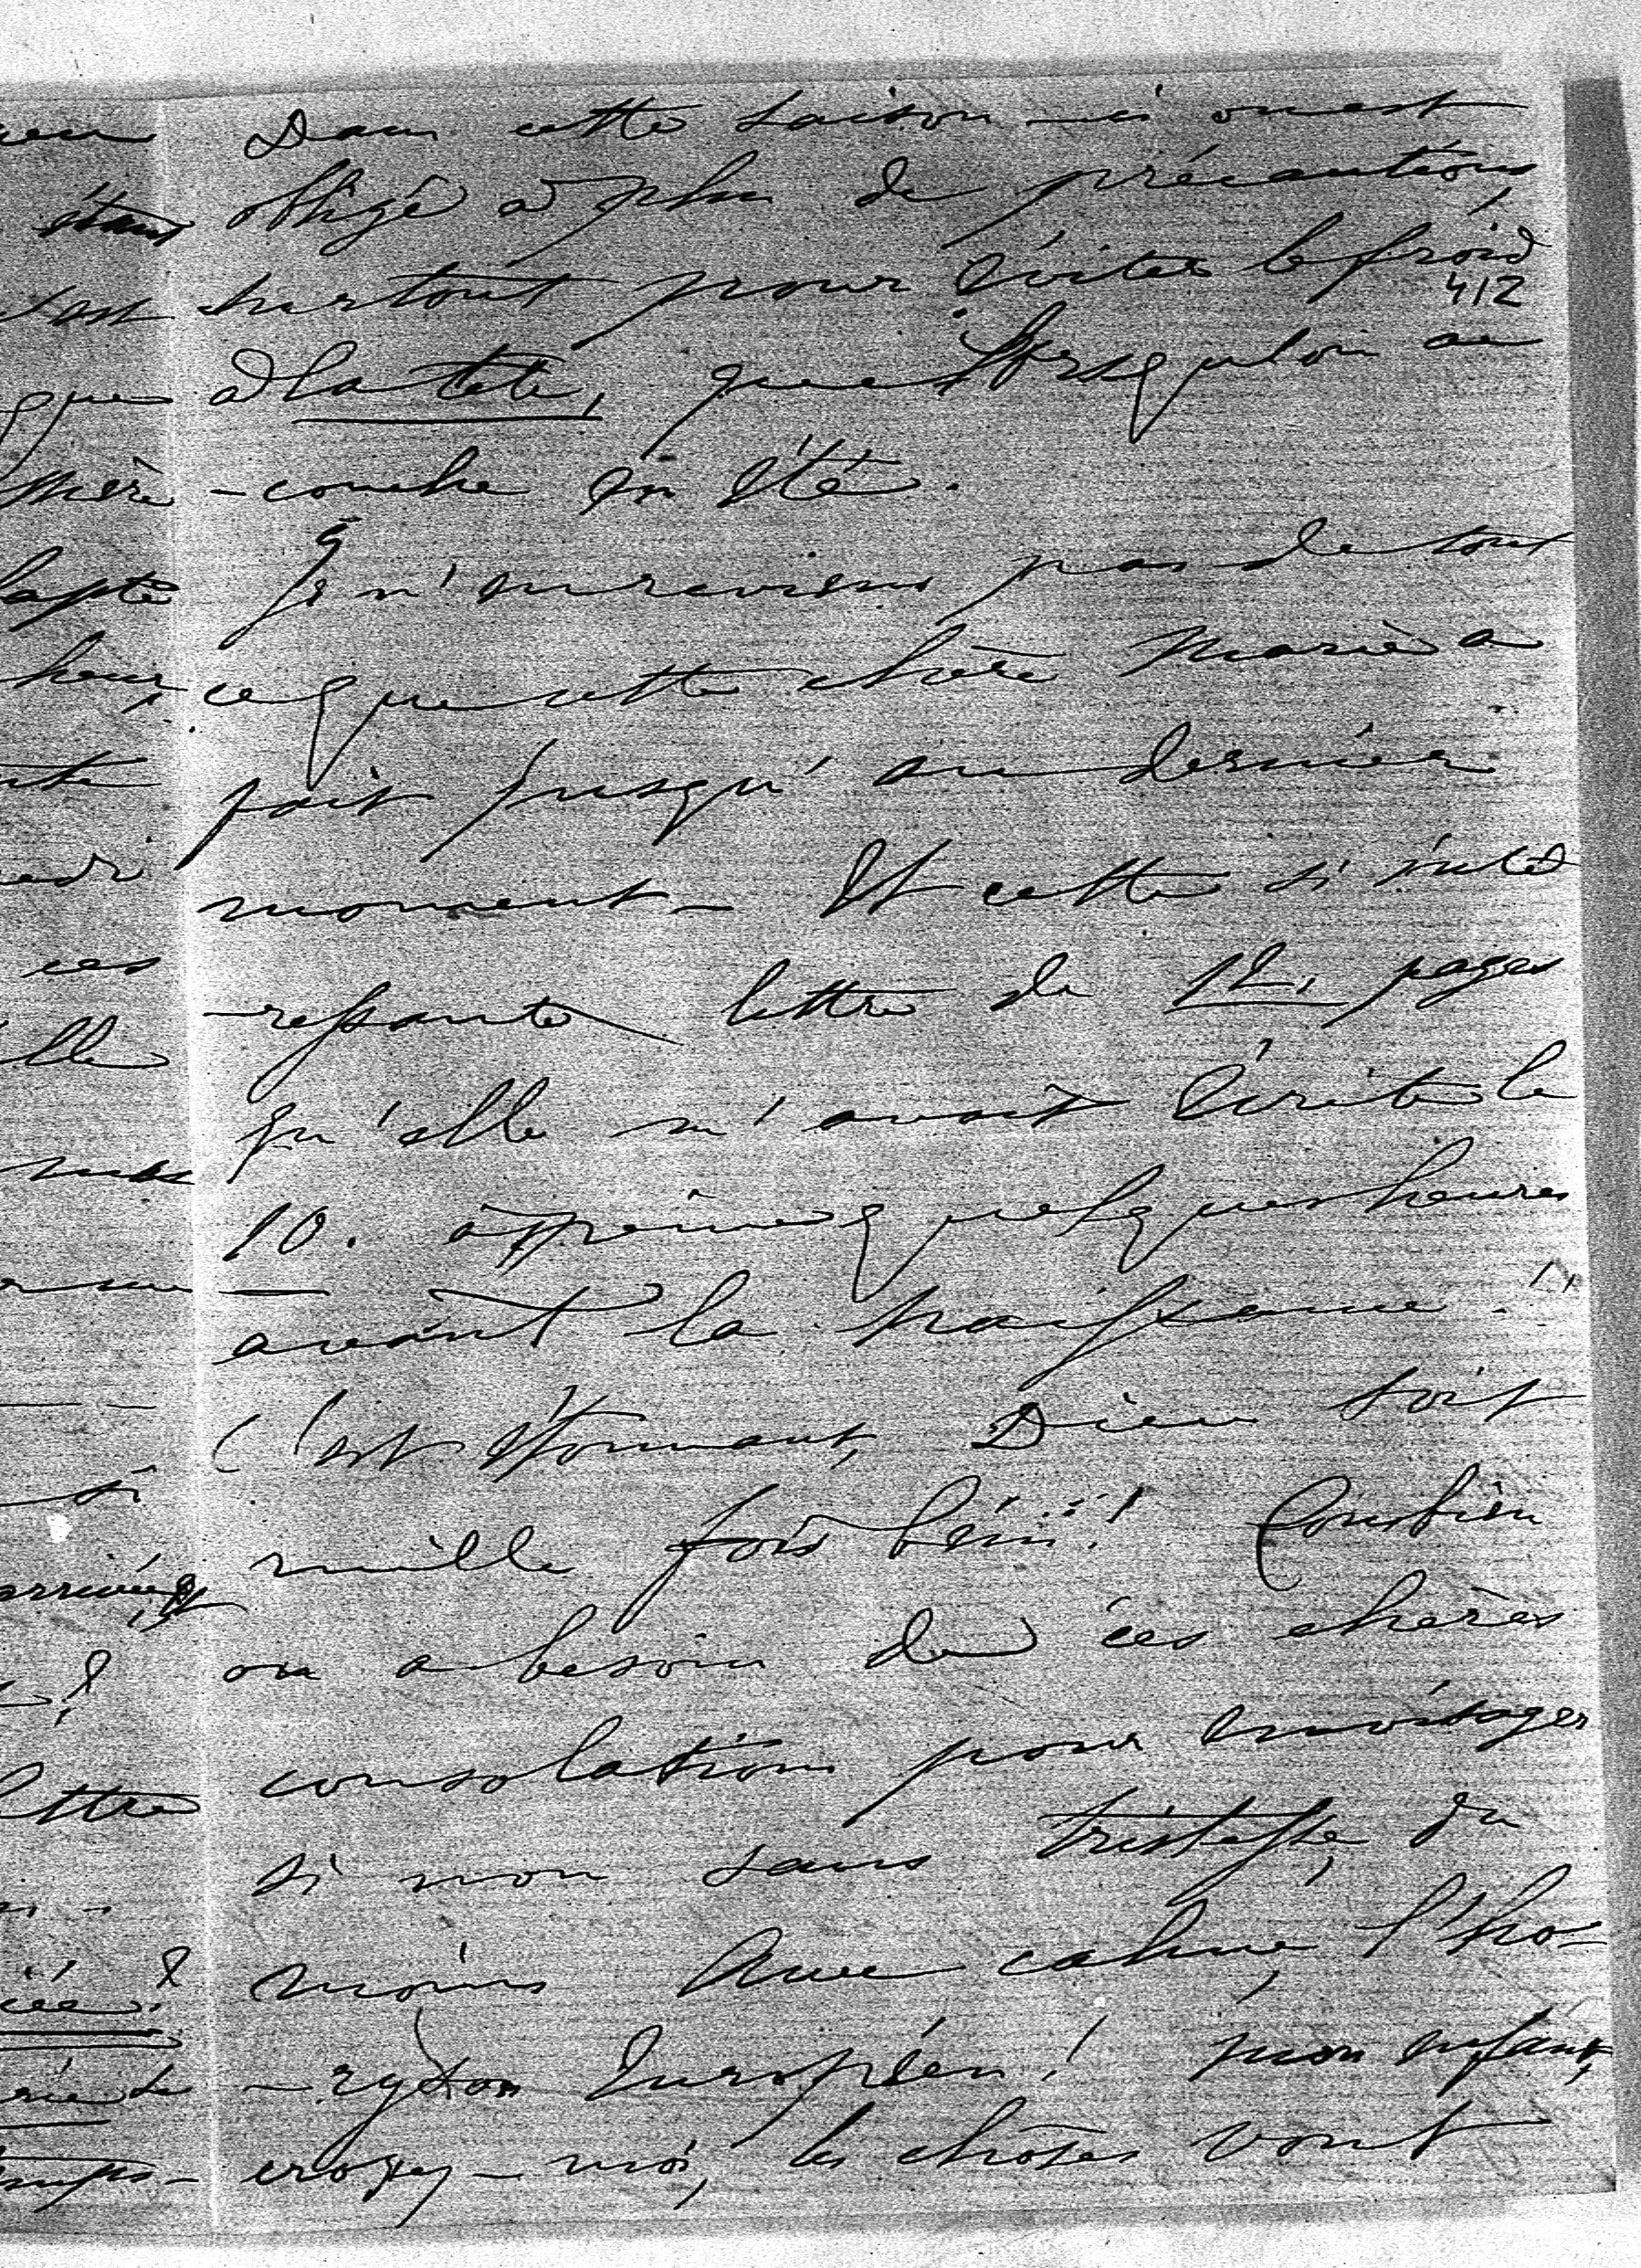 Dans cette saison-ci on est
obligé à plus de précautions,
surtout pour éviter le froid
412
à la tête, que lorsqu'on ac
-couche en été.
Je n'en reviens pas de tout
ce que cette chère Marie a
fait jusqu'au dernier
moment – Et cette si inté
-ressante lettre de 12, pages
qu'elle m'avait écrite le
10. à peine quelques heures
avant la naissance.
C'est étonnant, Dieu soit
mille fois béni! Combien
on a besoin de ces chères
consolations pour envisager
si non sans tristesse, du
moins avec calme, l'ho-
-ryzon Européen! mon enfant,
croyez-moi, les choses vont
étans
c'est
que
mère
ces
elle
si
lettre